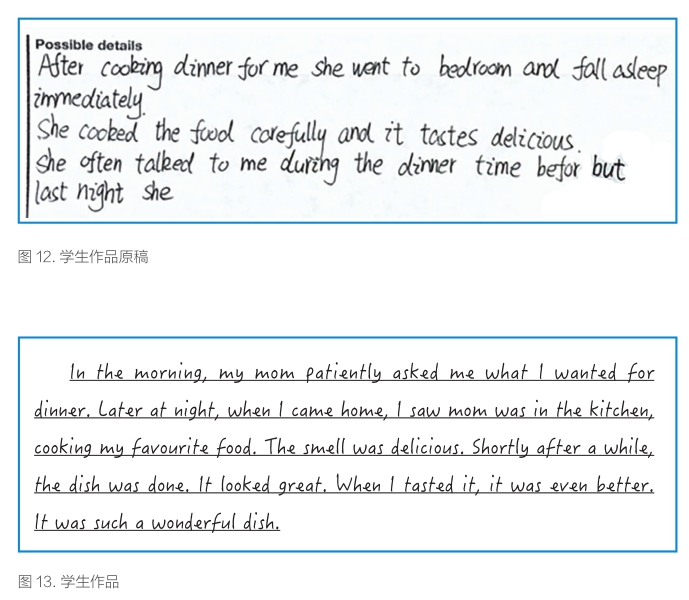 Possible details
After cooking dinner for me she went to bedroom and fall asleep
immediately.
She cooked the food carefully and it tastes delicious.
She often talked to me during the dinner time befor but
last night she
图 12. 学生作品原稿
In the morning, my mom patiently asked me what I wanted for
dinner. Later at night, when I came home, I saw mom was in the kitchen,
cooking my favourite food. The smell was delicious. Shortly after a while,
the dish was done. It looked great. When I tasted it, it was even better.
It was such a wonderful dish.
图 13. 学生作品